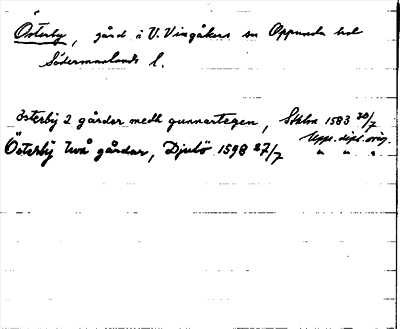 Österby, gård i V. Vingåkers sn Oppunda hd
Södermanlands l.
Österbÿ 2 gårder medh gunnartegen, Sthlm 1583 30/7
Upps. dipl. orig.
Österbÿ två gårdar, Djulö 1598 27/7 " " "